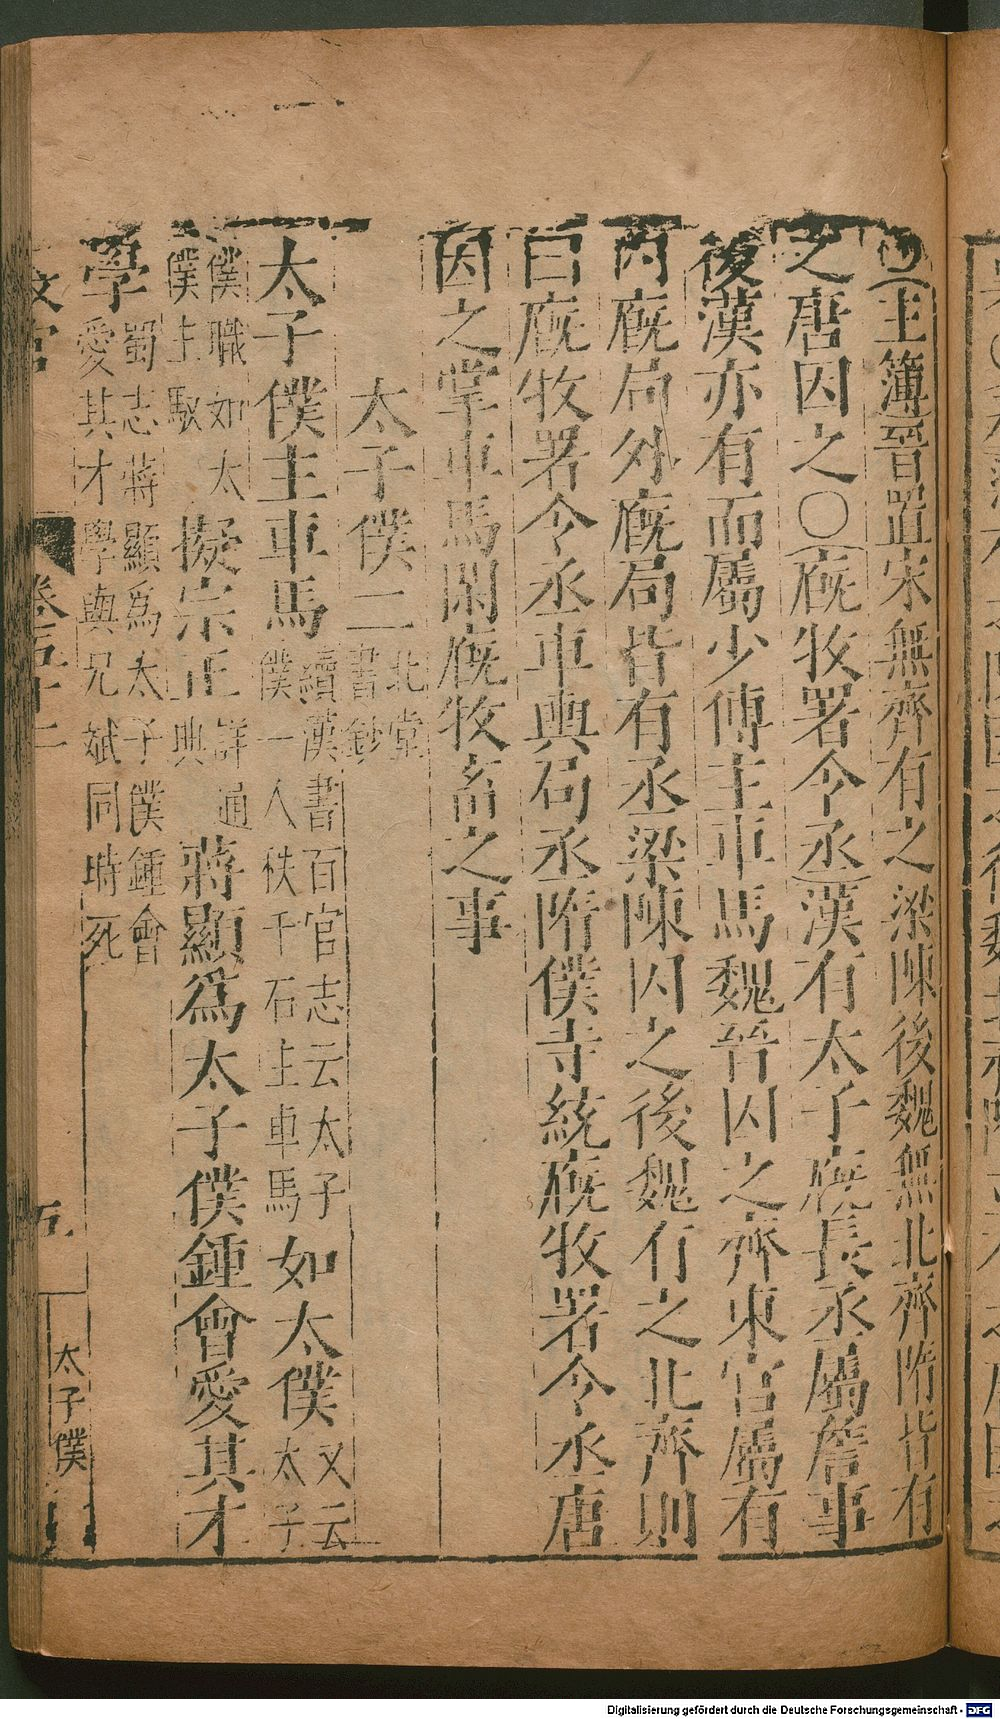 ○主簿晉置宋無齊有之梁陳後魏無北齊隋皆有
之唐因之○廐牧署令丞漢有太子廐長丞屬詹事
後漢亦有而屬少傅主車馬魏晉因之齊東宮屬有
內廐局外廐局皆有丞梁陳因之後魏有之北齊則
曰廐牧署令丞車輿局丞隋僕寺統廐牧署令丞唐
因之掌車馬閑廐牧畜之事
太子僕二北堂書鈔
太子僕主車馬續漢書百官志云太子僕一人秩千石主車馬如太僕又云太子
僕職如太僕主馭擬宗正詳通典蔣顯為太子僕鍾會愛其才
學蜀志蔣顯為太子僕鍾會愛其才學與兄斌同時死
卷五十二
五
太子僕
Digitalisierung gefördert durch die Deutsche Forschungsgemeinschaft - DFG